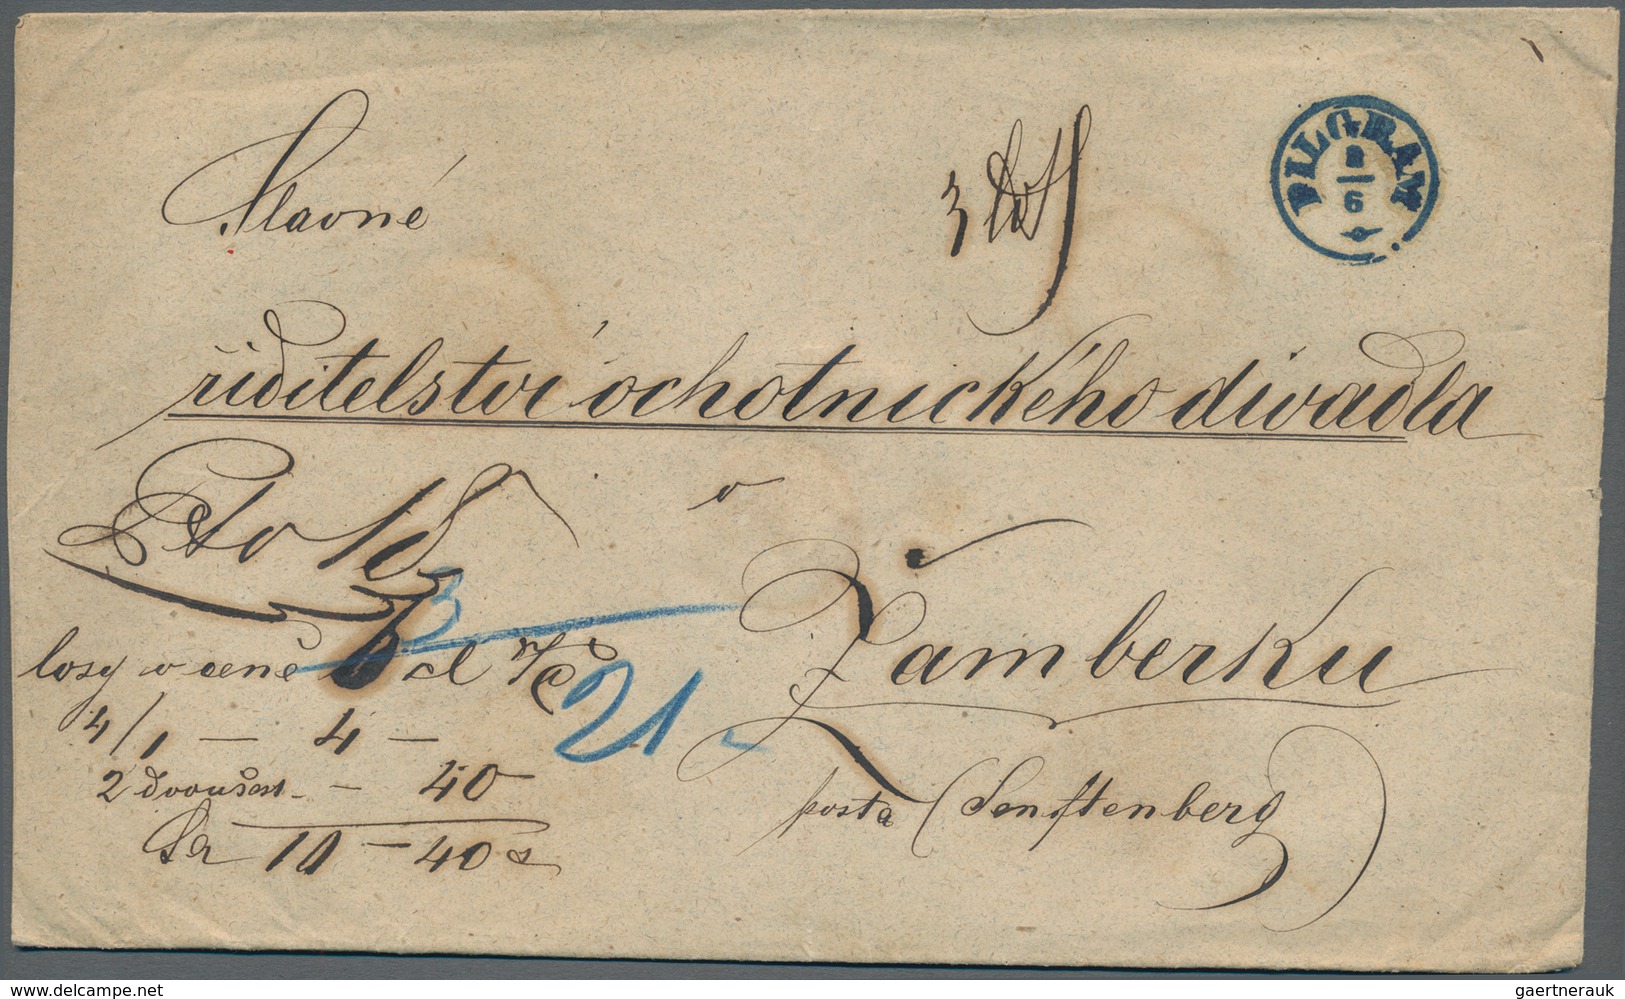 Slavné
3 Lot
PILGRAM
8
6
řiditelství ochotnického divadla
v
Žamberku
posta (Senftenberg)
3
losy v ceně 6 zl
21
4/1 — 4 —
2 dvoušest. — 40
Sa 10 — 40
www.delcampe.net
gaertnerauk